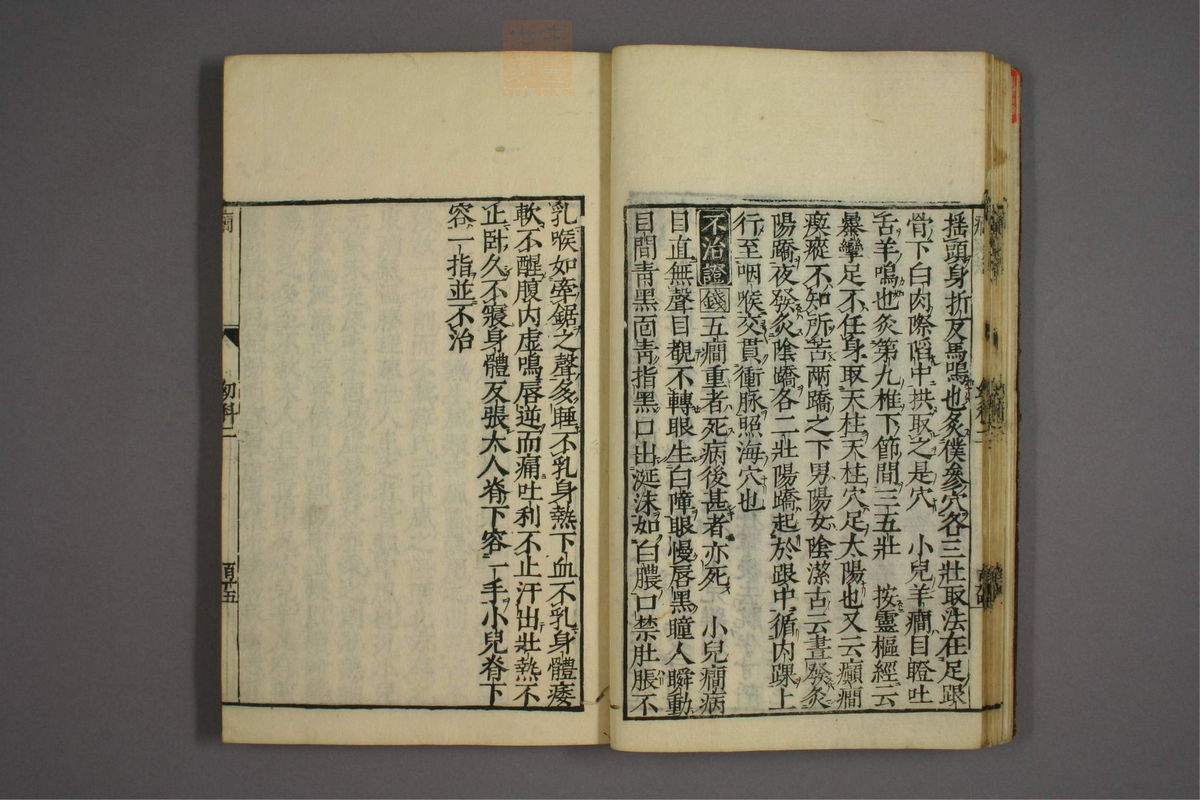 搖頭身折反馬鳴也灸僕參穴各三壯取法在足跟
骨下白肉際陷中拱取之是穴　小兒羊癎目瞪吐
舌羊鳴也灸第九椎下節間三五壯　按靈樞經云
暴攣足不任身取天柱天柱穴足太陽也又云癲癎
瘈瘲不知所苦兩蹻之下男陽女陰潔古云晝發灸
陽蹻夜發灸陰蹻各二壯陽蹻起於跟中循內踝上
行至咽喉交貫衝脉照海穴也
不治證錢五癎重者死病後甚者亦死　小兒癎病
目直無聲目覩不轉眼生白障眼慢唇黑瞳人瞬動
目間青黑面青指黑口出涎沫如白膿口禁肚脹不
乳喉如牽鋸之聲多睡不乳身熱下血不乳身體痿
軟不醒腹內虛鳴唇逆而痛吐利不止汗出壯熱不
止卧久不寤身體反張大人脊下容一手小兒脊下
容一指並不治
幼科二
百五